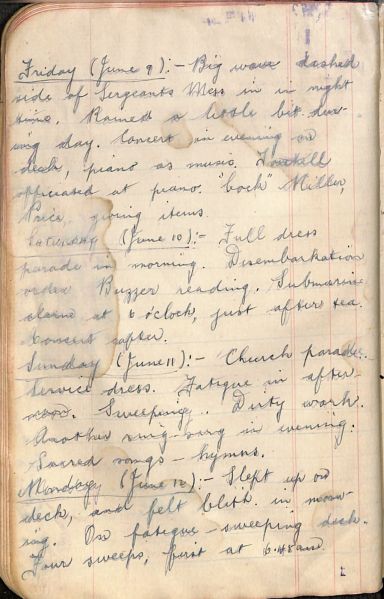 Friday (June 9):- Big wave dashed
side of Sergeants Mess in in night
time. Rained a little bit dur-
ing day. Concert in evening on
deck, piano as music.
officiated at piano. "Cock" Miller,
Price, giving items.
Saturday (June 10):- Full dress
parade in morning. Disembarkation
order Buzzer reading. Submarine
alarm at 6 o'clock, just after tea.
Concert after.
Sunday (June 11):- Church parade.
Service dress. Fatigue in after-
noon. Sweeping. Dirty work.
Another sing-song in evening.
Sacred songs - hymns.
Monday (June 12):- Slept up on
deck, and felt in morn-
ing. On fatigue - sweeping deck.
Four sweeps, first at 6.45am.